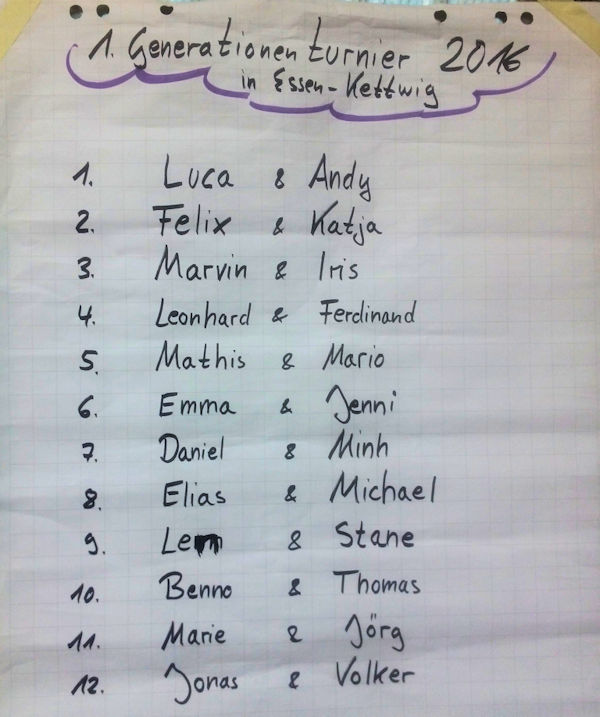 1. Generationenturnier 2016
in Essen-Kettwig
1. Luca & Andy
2. Felix & Katja
3. Marvin & Iris
4. Leonhard & Ferdinand
5. Mathis & Mario
6. Emma & Jenni
7. Daniel & Minh
8. Elias & Michael
9. & Stane
10. Benno & Thomas
11. Marie & Jörg
12. Jonas & Volker